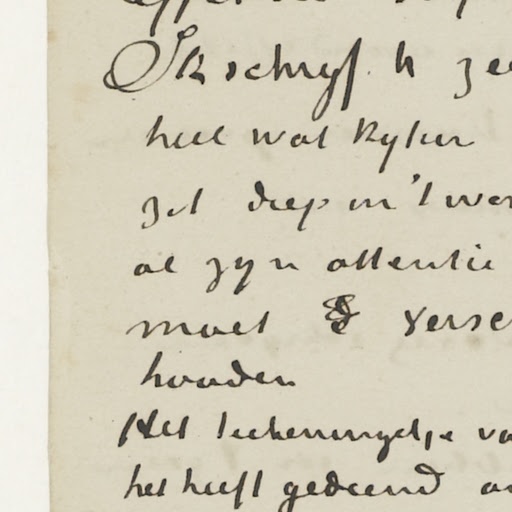 Ik schryf U
heel wat kyken
zit diep in 't wer
al zyn attentie
moet & verse
houden
Het teekeningetje va
het heeft gediend